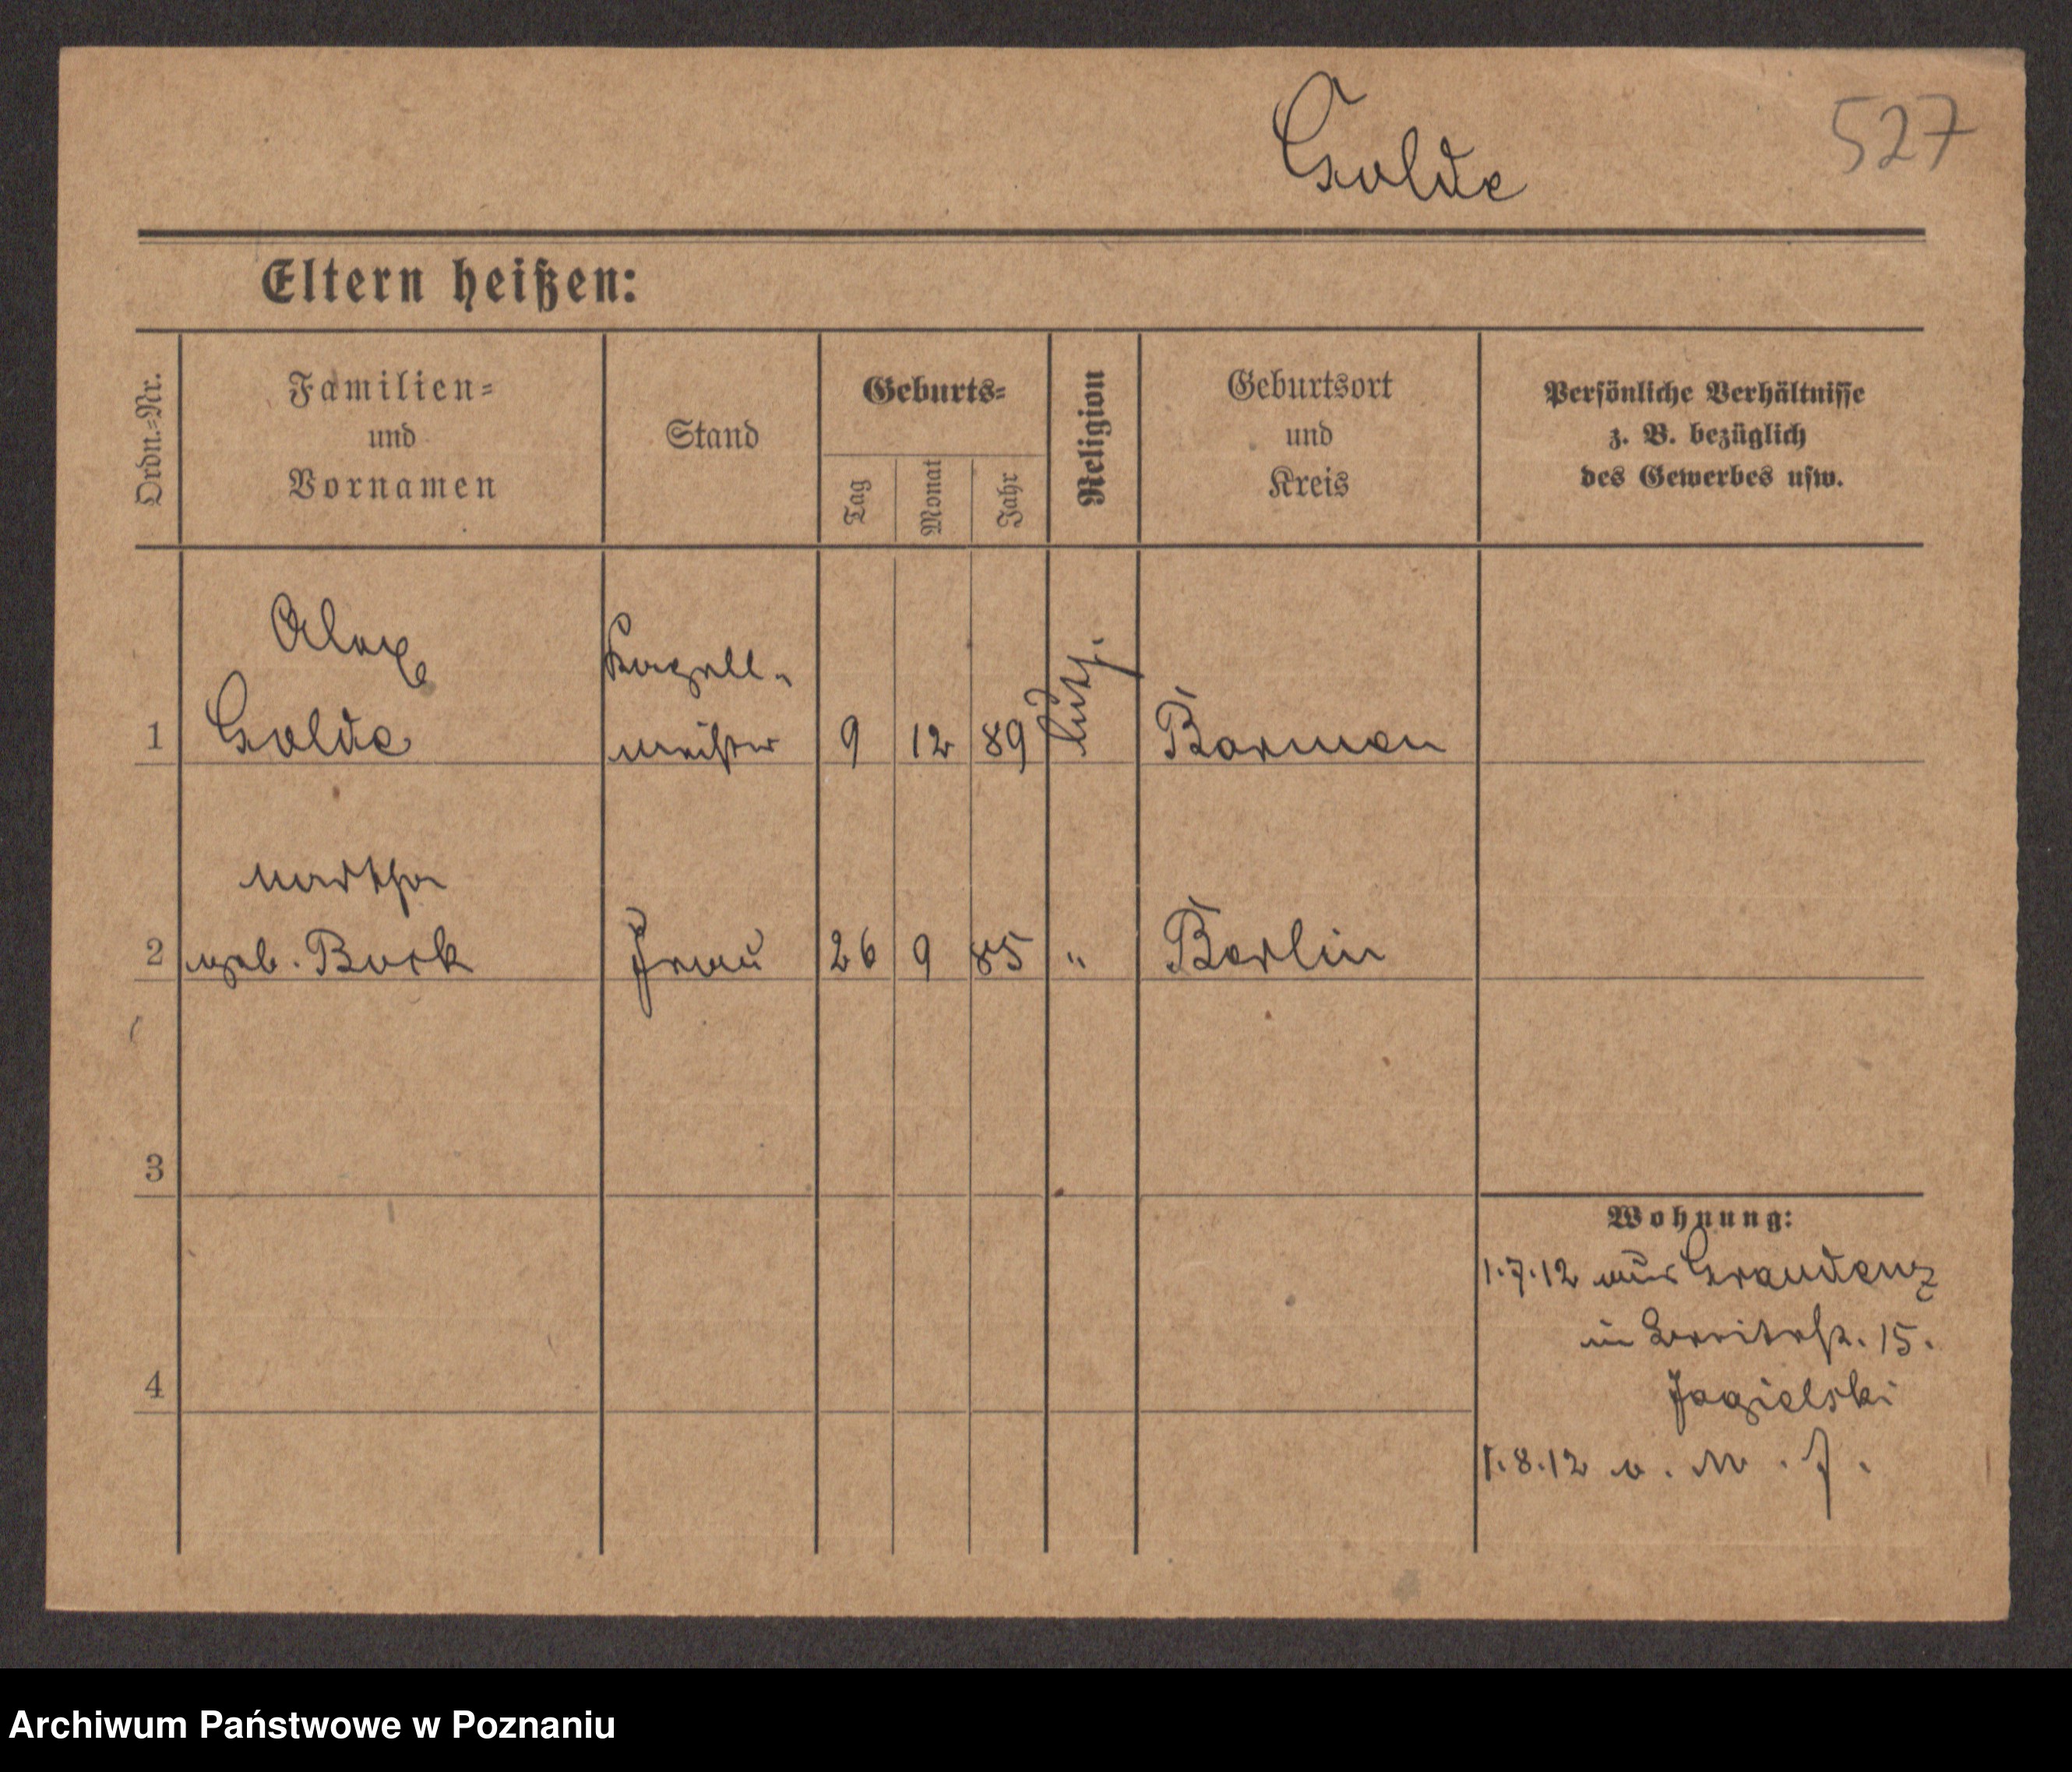 Golde
527
Eltern heißen:
Ordn.-Nr.
Familien-
und
Vornamen
Stand
Geburts-
Tag
Monat
Jahr
Religion
Geburtsort
und
Kreis
Persönliche Verhältnisse
z. B. bezüglich
des Gewerbes usw.
1
Alex
Golde
Kapell-
meister
9
12
89
luth.
Barmen
2
Martha
geb. Bock
Frau
26
9
85
"
Berlin
3
4
Wohnung:
1.7.12 aus Graudenz
in Breitestr. 15.
Jagielski
1.8.12 v. M. J.
Archiwum Państwowe w Poznaniu